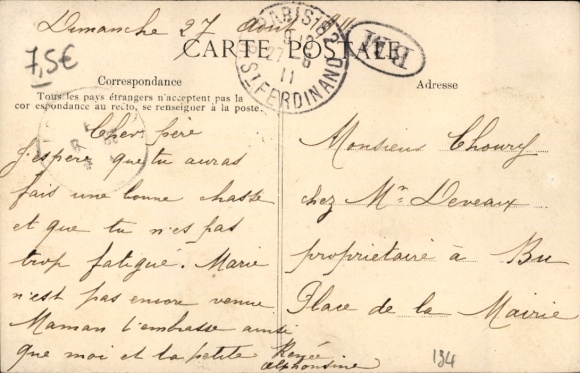 Dimanche 27 Août 1911
7,5€
CARTE POSTALE
PARIS 18
27 8
11
ST FERDINAND
BAI
Correspondance
Tous les pays étrangers n'acceptent pas la
cor espondance au recto, se renseigner à la poste.
Adresse
Cher père
J'espère que tu auras
fais une bonne chasse
et que tu n'es pas
trop fatigué. Marie
n'est pas encore venue
Maman t'embrasse ainsi
que moi et la petite Renée
Alphonsine
Monsieur Choury
chez Mr Deveaux
propriétaire à Bu
Place de la Mairie
194